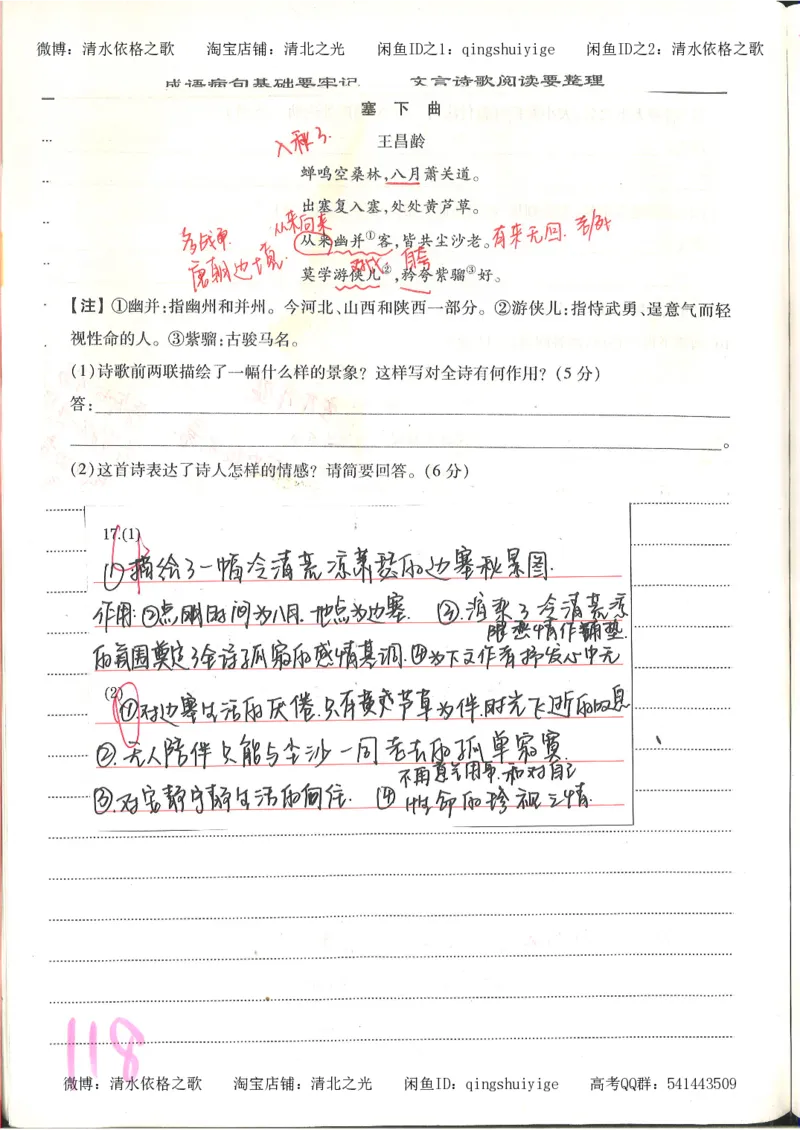 微博：清水依格之歌 淘宝店铺：清北之光 闲鱼ID之1：qingshuiyige 闲鱼ID之2：清水依格之歌
成语病句基础要牢记 文言诗歌阅读要整理
塞下曲
入秋了.
王昌龄
蝉鸣空桑林,八月萧关道。
出塞复入塞,处处黄芦草。
从来回来
多战争
从来幽并①客,皆共尘沙老。
有来无回.
唐朝边境.
对比
自夸
莫学游侠儿②,矜夸紫骝③好。
【注】①幽并:指幽州和并州。今河北、山西和陕西一部分。②游侠儿:指恃武勇、逞意气而轻
视性命的人。③紫骝:古骏马名。
(1)诗歌前两联描绘了一幅什么样的景象？这样写对全诗有何作用？(5分)
答:
。
(2)这首诗表达了诗人怎样的情感？请简要回答。(6分)
17.(1)
①描绘了一幅冷清荒凉萧瑟的边塞秋景图.
作用:②点明时间为八月.地点为边塞. ③.渲染了冷清荒凉
的氛围奠定了全诗孤寂的感情基调.④为下文作者抒发心中无
限愁情作铺垫.
(2)
①.对边塞生活的厌倦.只有黄芦草为伴.时光飞逝的叹息
②.无人陪伴只能与尘沙一同老去的孤单寂寞.
③.对安静宁静生活的向往. ④
不再意气用事.和对自己
性命的珍视之情.
118
微博：清水依格之歌 淘宝店铺：清北之光 闲鱼ID：qingshuiyige 高考QQ群：541443509